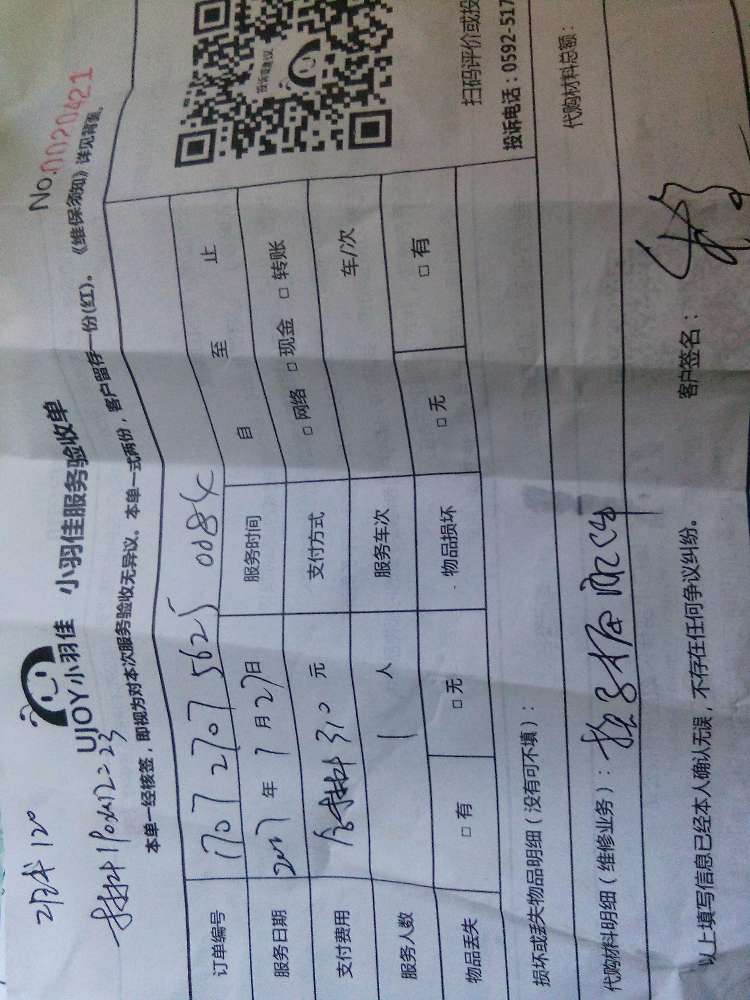 工时 120
材料 110+12=23
UJOY小羽佳 小羽佳服务验收单
No.0020421
本单一经核签，即视为对本次服务验收无异议。本单一式两份，客户留存一份(红)。《维保须知》详见背面。
订单编号 1707 2707 5625 0084
自 至 止
服务日期 2017 年 7 月 27 日 服务时间
支付费用 含材料 310 元 支付方式 □ 网络 □ 现金 □ 转账
服务人数 1 人 服务车次 车/次
物品丢失 □ 有 □ 无 物品损坏 □ 无 □ 有
投诉或建议
扫码评价或投
投诉电话：0592-517
损坏或丢失物品明细（没有可不填）：
代购材料明细（维修业务）：
代购材料总额：
客户签名：
以上填写信息已经本人确认无误，不存在任何争议纠纷。